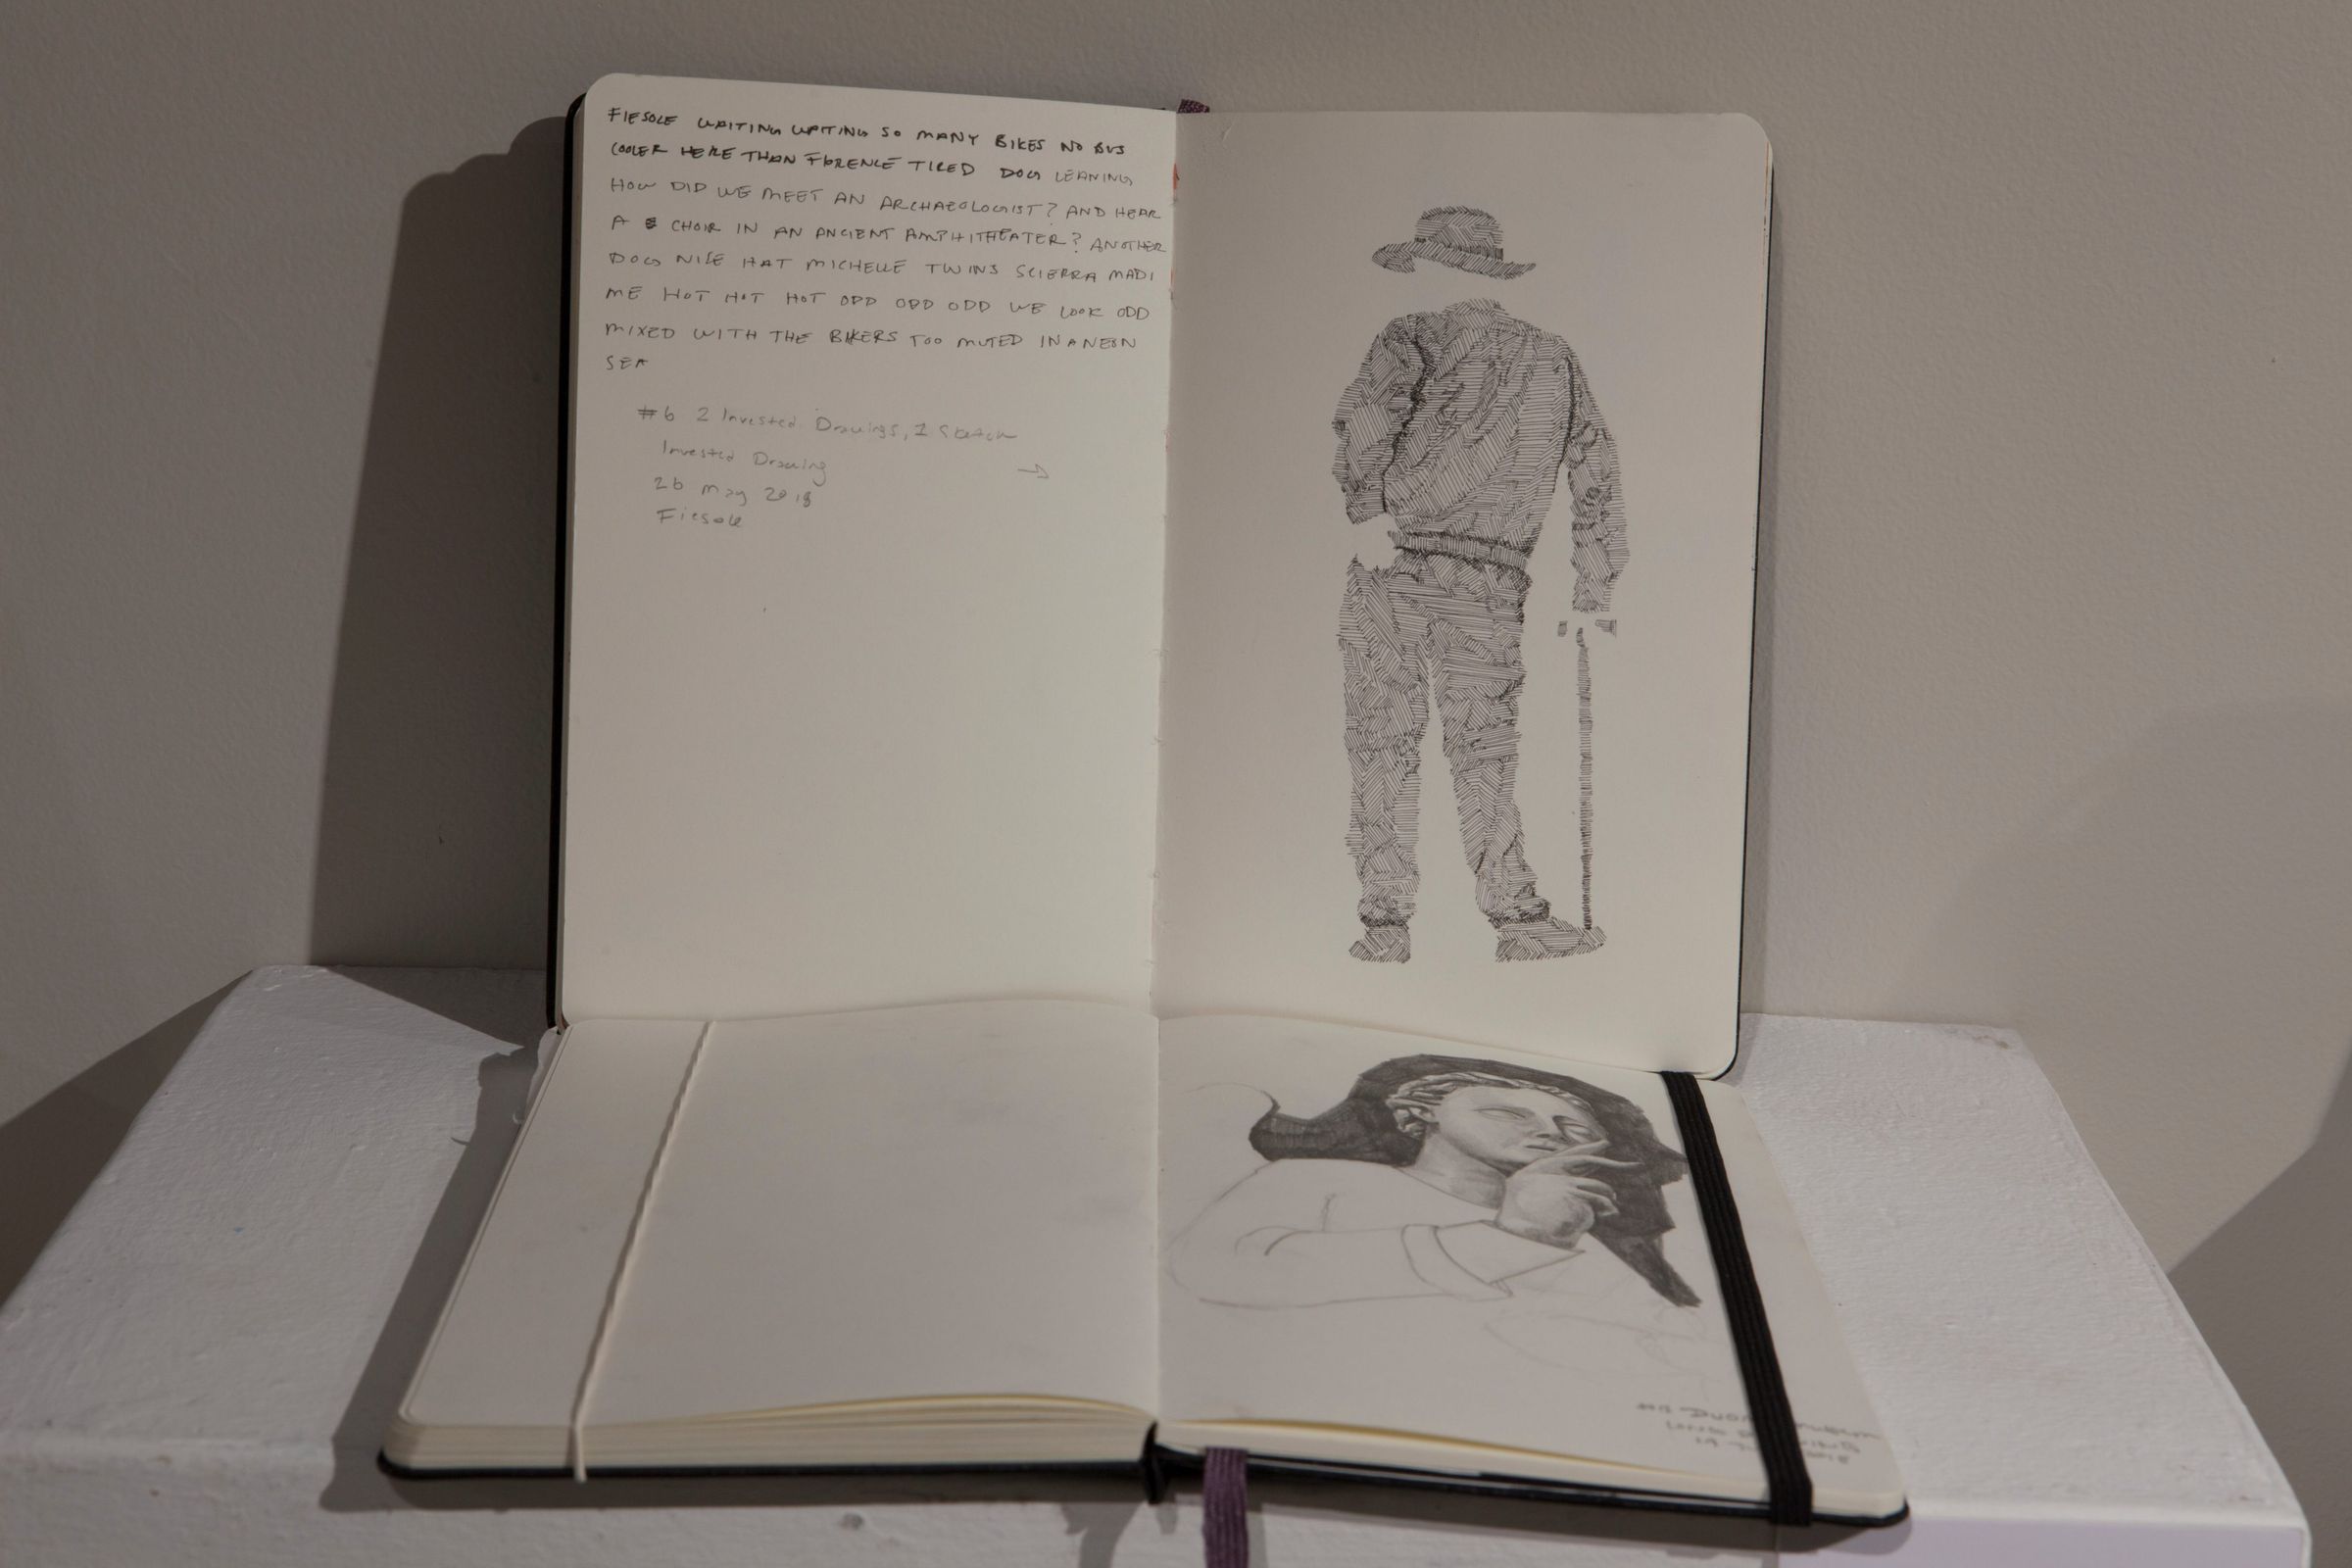 FIESOLE WAITING WAITING SO MANY BIKES NO BUS
COOLER HERE THAN FLORENCE TIRED DOG LEANING
HOW DID WE MEET AN ARCHAEOLOGIST? AND HEAR
A CHOIR IN AN ANCIENT AMPHITHEATER? ANOTHER
DOG NICE HAT MICHELLE TWINS SCIERRA MADI
ME HOT HOT HOT ODD ODD ODD WE LOOK ODD
MIXED WITH THE BIKERS TOO MUTED IN A NEON
SEA
#6 2 Invested Drawings, 1 Sketch
Invested Drawing
26 may 2018
Fiesole